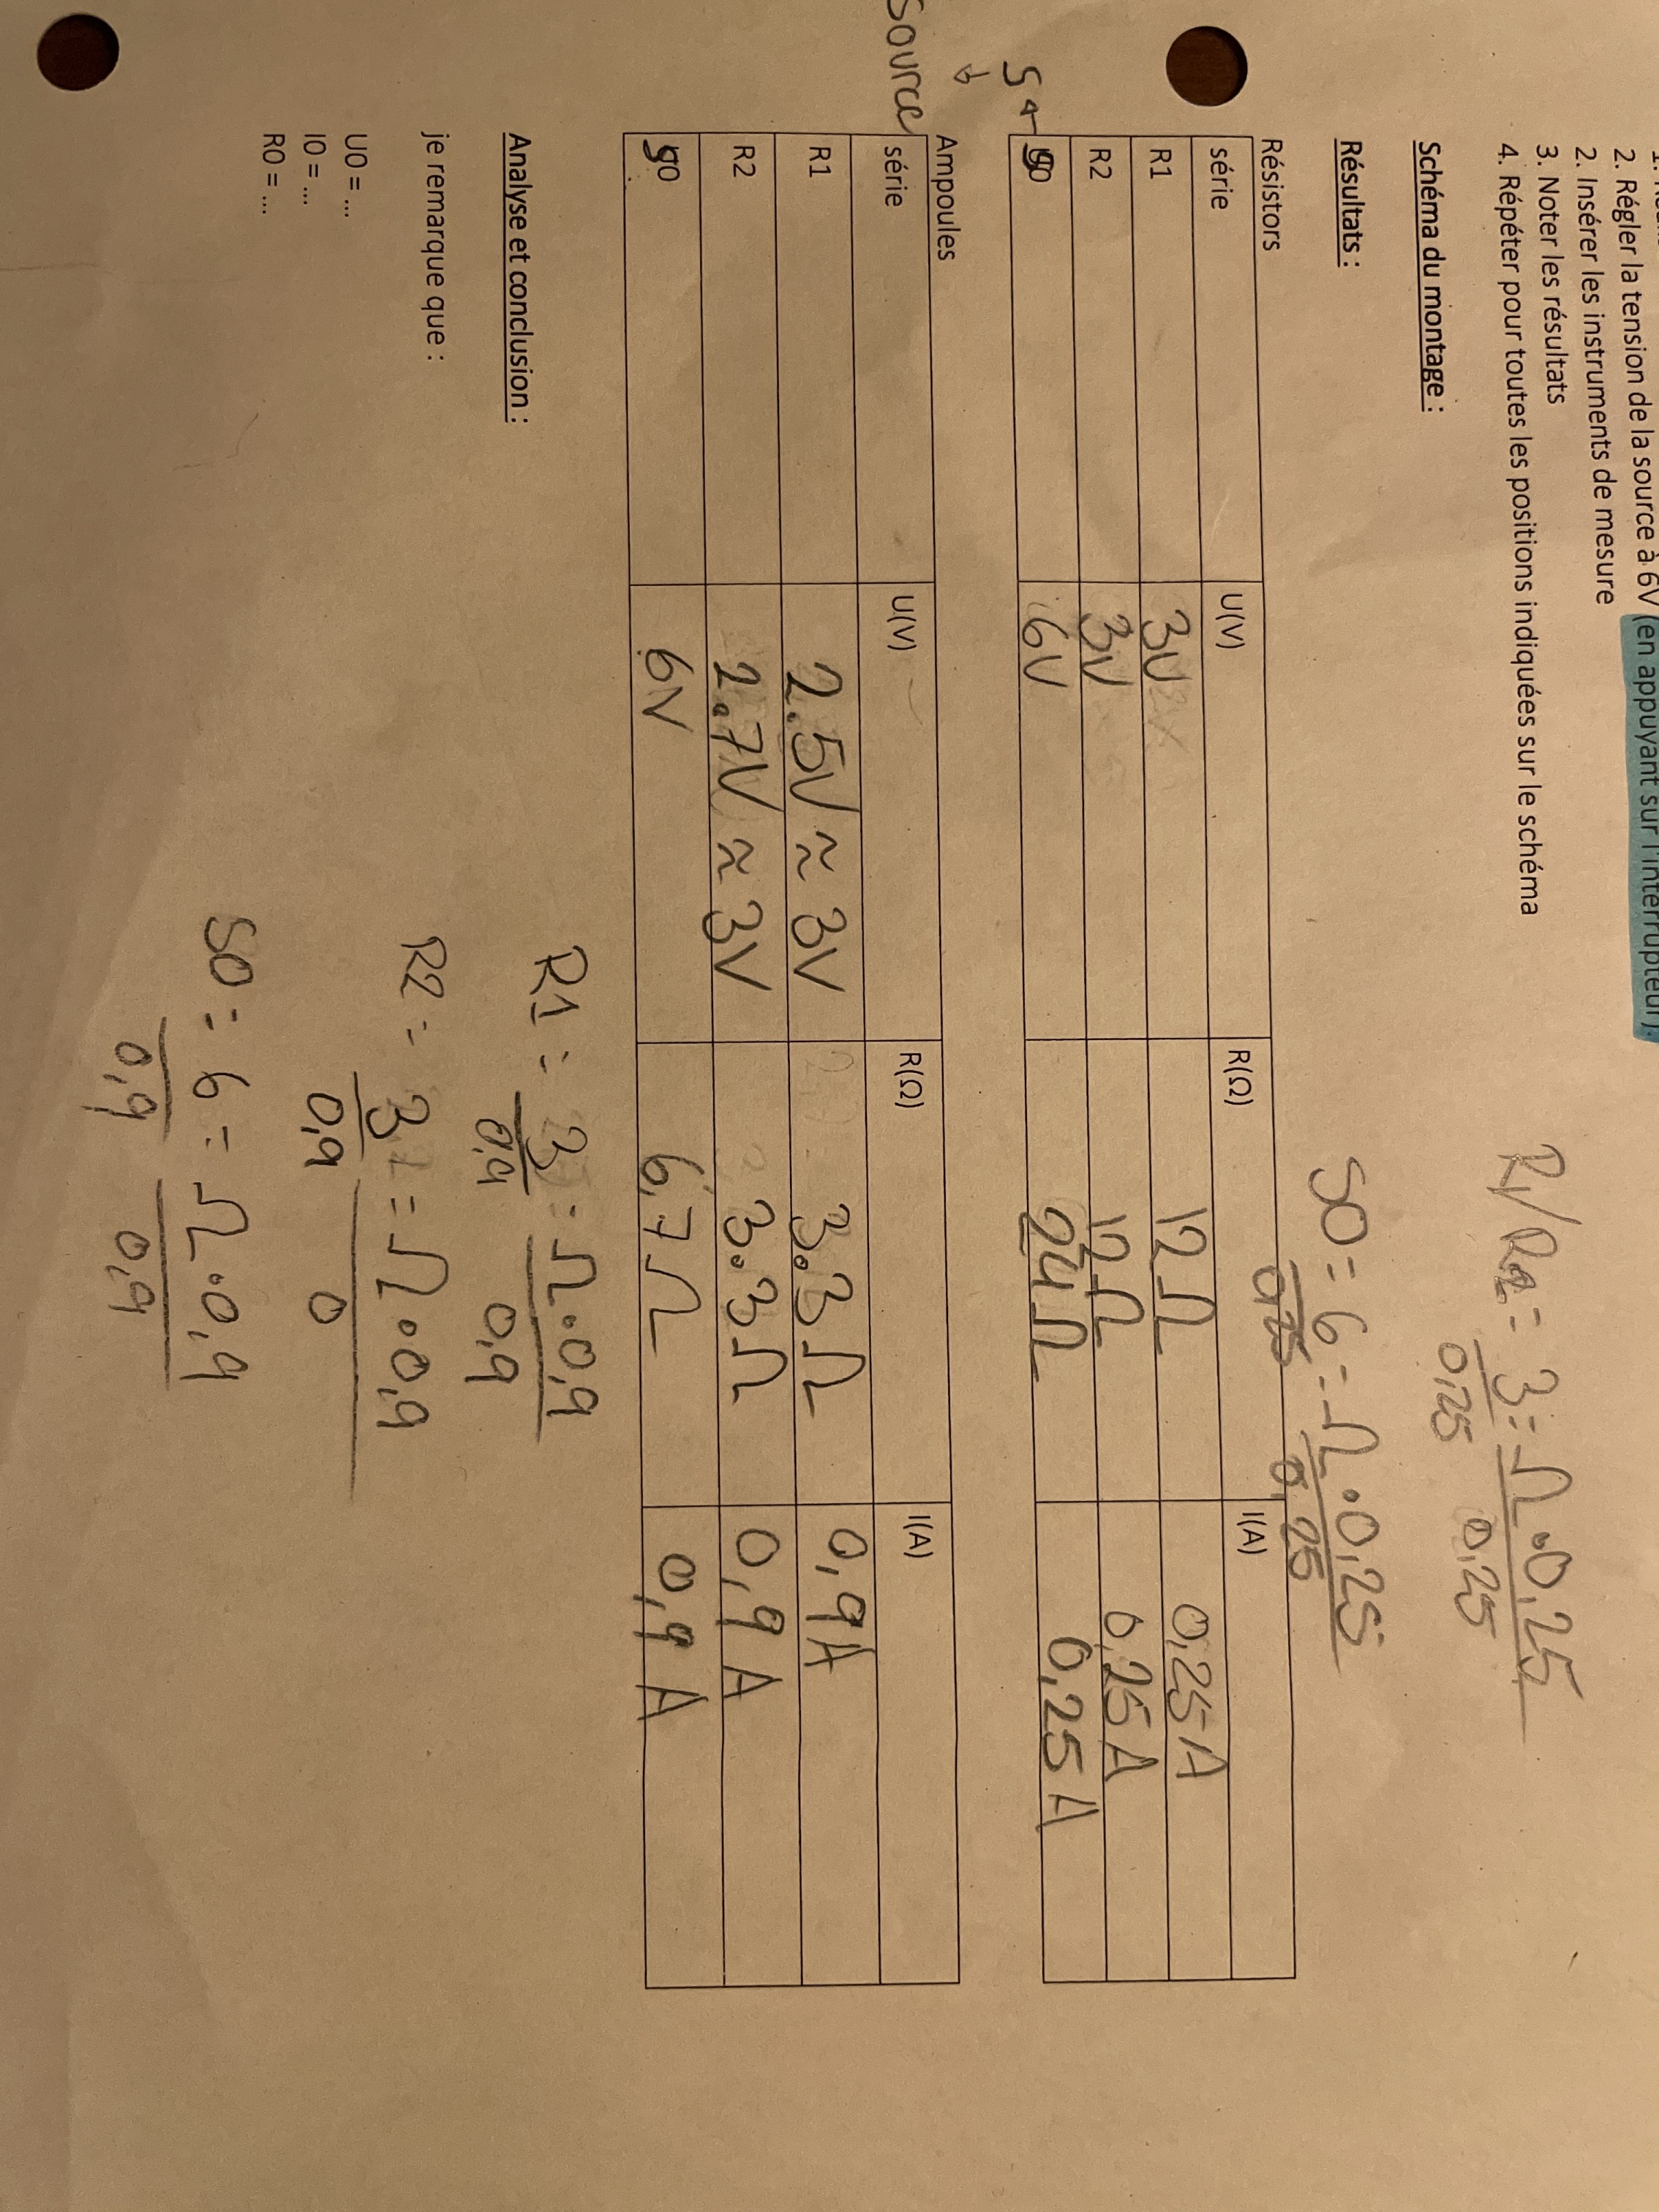 2. Régler la tension de la source à 6V (en appuyant sur l'interrupteur).
2. Insérer les instruments de mesure
3. Noter les résultats
4. Répéter pour toutes les positions indiquées sur le schéma
Schéma du montage :
R1/R2 = 3 = Ω . 0,25
0,25 0,25
Résultats :
SO = 6 = Ω . 0,25
0,25 0,25
Résistors
série U(V) R(Ω) I(A)
R1 3V 12Ω 0,25A
R2 3V 12Ω 0,25A
S0 6V 24Ω 0,25A
Source
Ampoules
série U(V) R(Ω) I(A)
R1 2.5V ≈ 3V 3.3Ω 0,9A
R2 2.7V ≈ 3V 3.3Ω 0,9A
S0 6V 6,7Ω 0,9A
Analyse et conclusion :
R1 = 3 = Ω . 0,9
0,9 0,9
je remarque que :
R2 = 3 = Ω . 0,9
0,9 0
U0 = ...
I0 = ...
R0 = ...
SO = 6 = Ω . 0,9
0,9 0,9